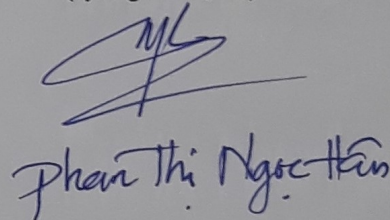 Phan Thị Ngọc Hân